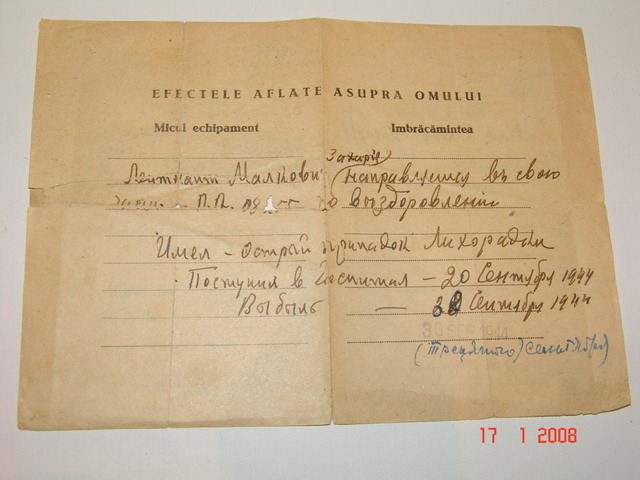 EFECTELE AFLATE ASUPRA OMULUI
Micul echipament Imbrăcămintea
Захарія
Лейтнант Малкович направляется въ свою
П.П. по выздоровлении
Имел - острый припадок Лихорадки
Поступил в Госпитал - 20 Сентября 1944
Выбылъ - 30 Сентября 1944
30 SEP 1944
(трецятого) сентября)
17 1 2008